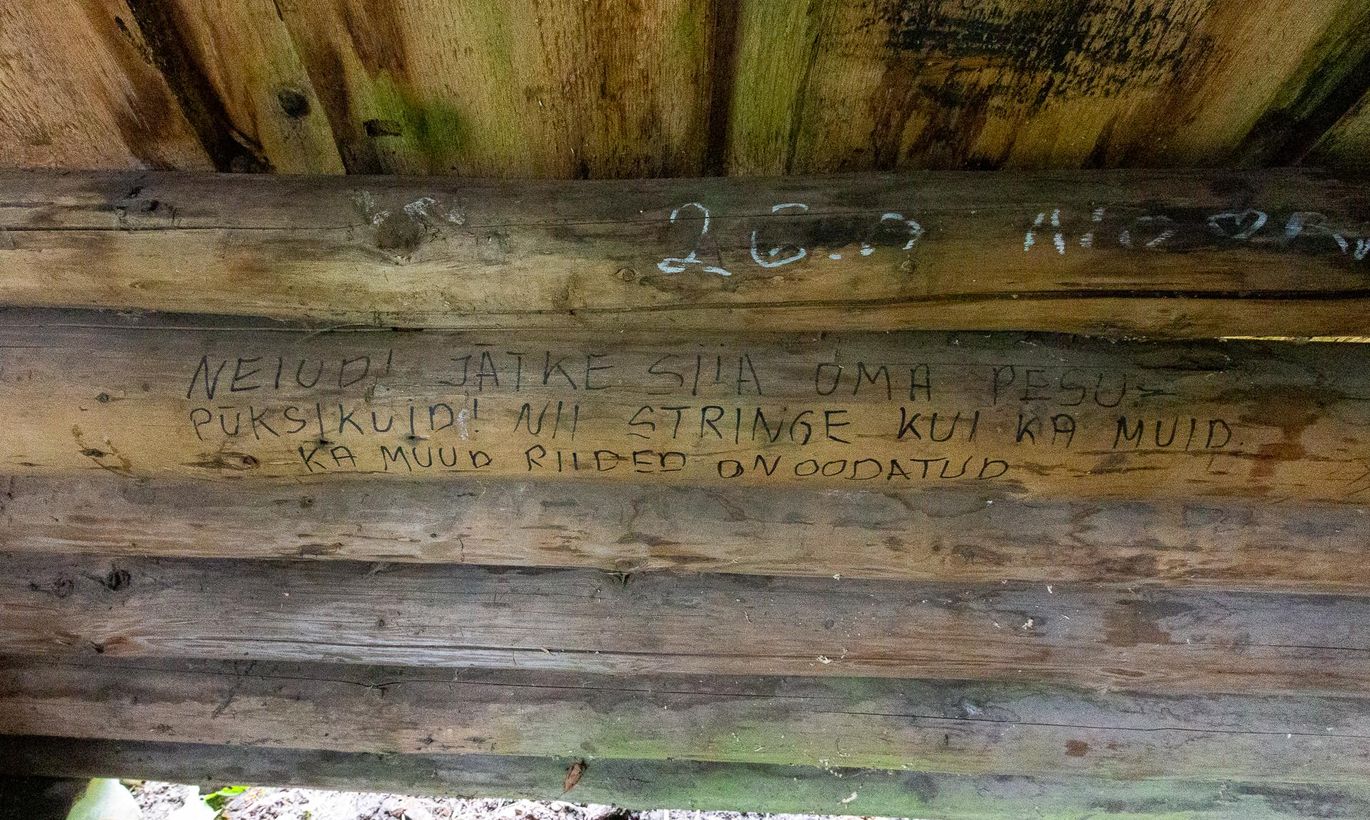 NEIUD! JÄTKE SIIA OMA PESU-
PÜKSIKUID! NII STRINGE KUI KA MUID.
KA MUUD RIIDED ON OODATUD